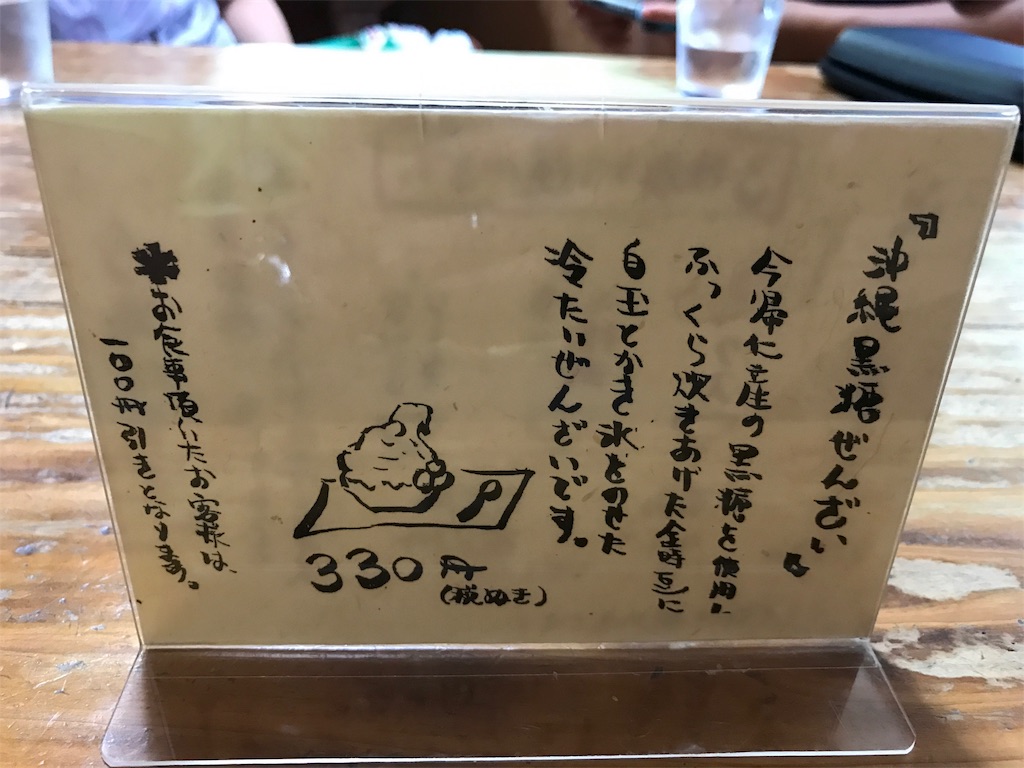 『沖縄黒糖ぜんざい』
今帰仁産の黒糖を使用し
ふっくら炊きあげた金時豆に
白玉とかき氷をのせた
冷たいぜんざいです。
330円
(税ぬき)
✱お食事頂いたお客様は、
一〇〇円引きとなります。